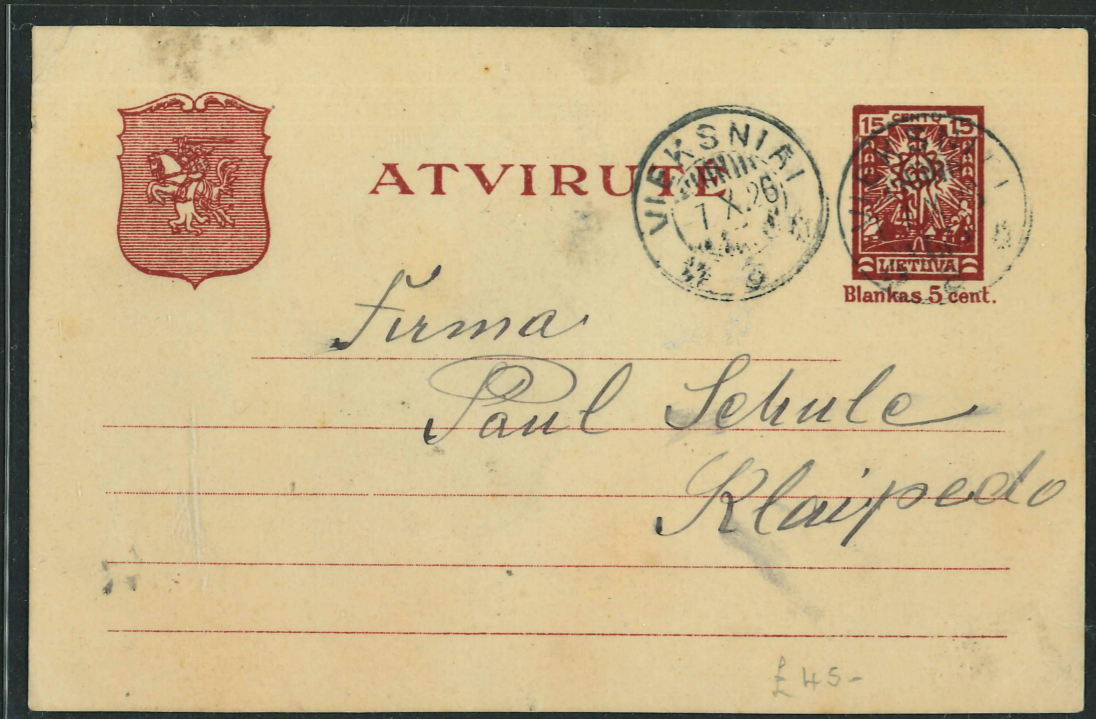 ATVIRUTE
VIEKŠNIAI
7 X.26
15 CENTŲ 15
LIETUVA
Blankas 5 cent.
Firma
Paul Schule
Klaipedo
£45-